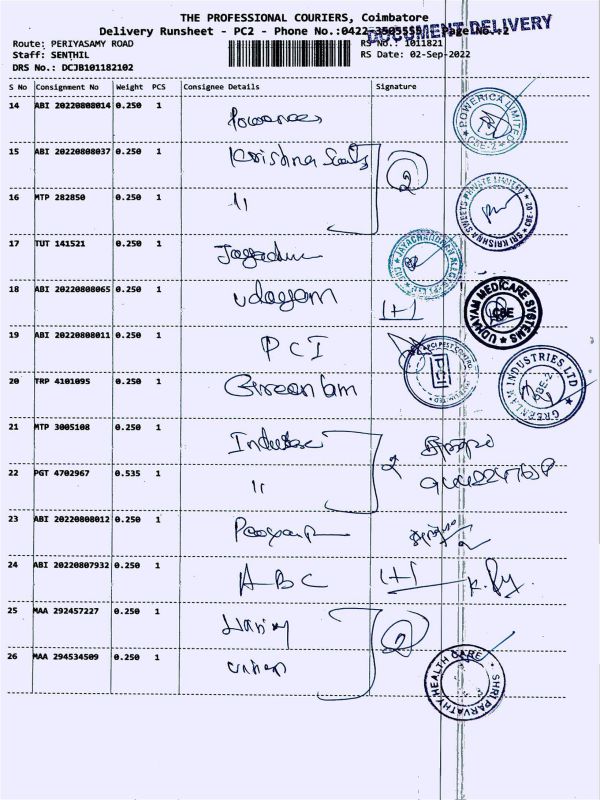 THE PROFESSIONAL COURIERS, Coimbatore
Delivery Runsheet - PC2 - Phone No.:0422-3505555 Page No.:2
DOCUMENT DELIVERY
Route: PERIYASAMY ROAD RS No.: 1011821
Staff: SENTHIL RS Date: 02-Sep-2022
DRS No.: DCJB101182102
S No Consignment No Weight PCS Consignee Details Signature
14 ABI 20220808014 0.250 1
POWERICA LIMITED CBE-2
15 ABI 20220808037 0.250 1 Krishna Sweets 2
16 MTP 282850 0.250 1 11
SRI KRISHNA SWEETS PRIVATE LIMITED CBE-20
17 TUT 141521 0.250 1
18 ABI 20220808065 0.250 1 Udayam 1+1
UDHAYAM MEDICARE SYSTEMS CBE
19 ABI 20220808011 0.250 1 PCI
PCI PEST CONTROL
20 TRP 4101095 0.250 1 Greenlam
GREENLAM INDUSTRIES LTD CBE-2
21 MTP 3005108 0.250 1 2
22 PGT 4702967 0.535 1 11
23 ABI 20220808012 0.250 1
24 ABI 20220807932 0.250 1 ABC 1+1
25 MAA 292457227 0.250 1 2
26 MAA 294534509 0.250 1
SHRI PARVATHY HEALTH CARE